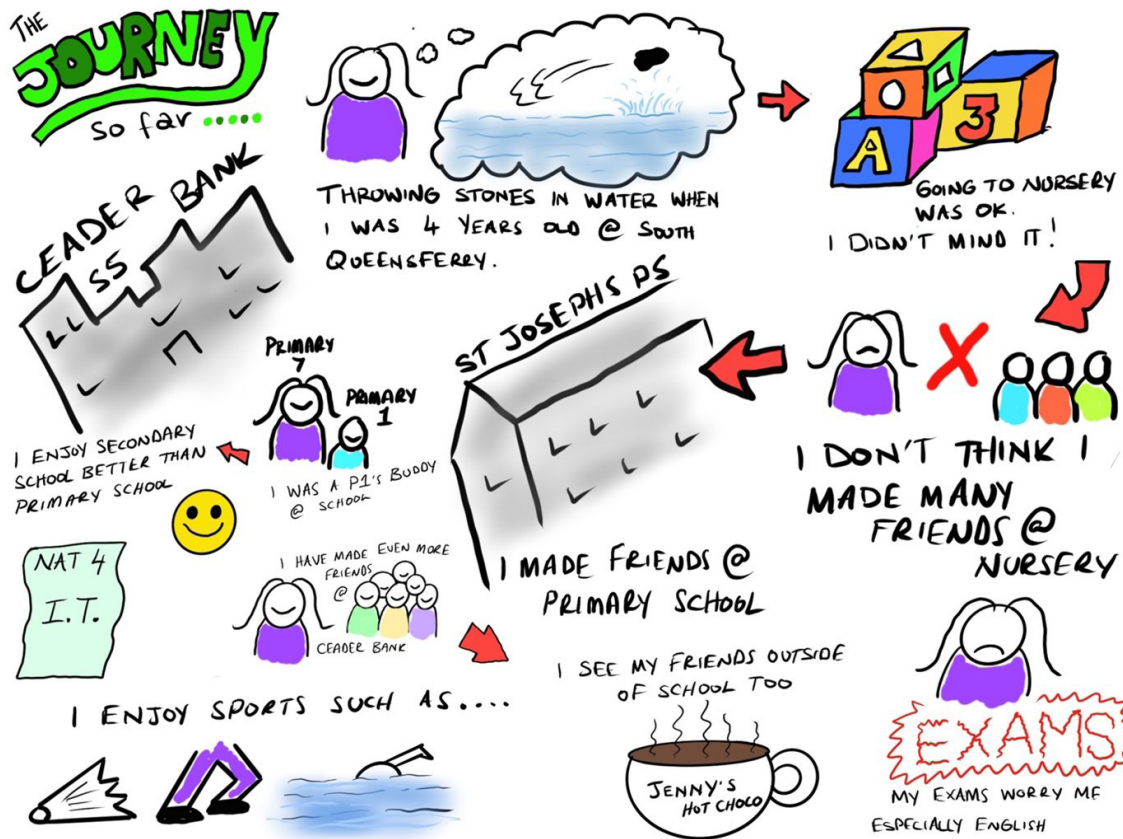 THE
JOURNEY
so far .....
THROWING STONES IN WATER WHEN
I WAS 4 YEARS OLD @ SOUTH
QUEENSFERRY.
A
3
GOING TO NURSERY
WAS OK.
I DIDN'T MIND IT!
I DON'T THINK I
MADE MANY
FRIENDS @
NURSERY
ST JOSEPHS PS
I MADE FRIENDS @
PRIMARY SCHOOL
PRIMARY
7
PRIMARY
1
I WAS A P1'S BUDDY
@ SCHOOL
CEADER BANK
SS
I ENJOY SECONDARY
SCHOOL BETTER THAN
PRIMARY SCHOOL
NAT 4
I.T.
I HAVE MADE EVEN MORE
FRIENDS
@
CEADER BANK
I SEE MY FRIENDS OUTSIDE
OF SCHOOL TOO
JENNY'S
HOT CHOCO
EXAMS
MY EXAMS WORRY ME
ESPECIALLY ENGLISH
I ENJOY SPORTS SUCH AS....